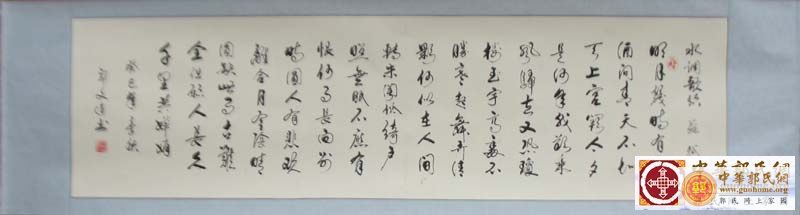 水调歌头 苏
明月幾时有
酒问青天不知
天上宫阙今夕
是何年我欲乘
风归去又恐琼
楼玉宇高处不
胜寒起舞弄清
影何似在人间
转朱阁低绮户
照无眠不应有
恨何事长向别
时圆人有悲欢
离合月有阴晴
圆缺此事古难
全但愿人长久
千里共婵娟
癸巳年
郭文书
中華郭氏網
www.guohome.org
郭氏网上家國